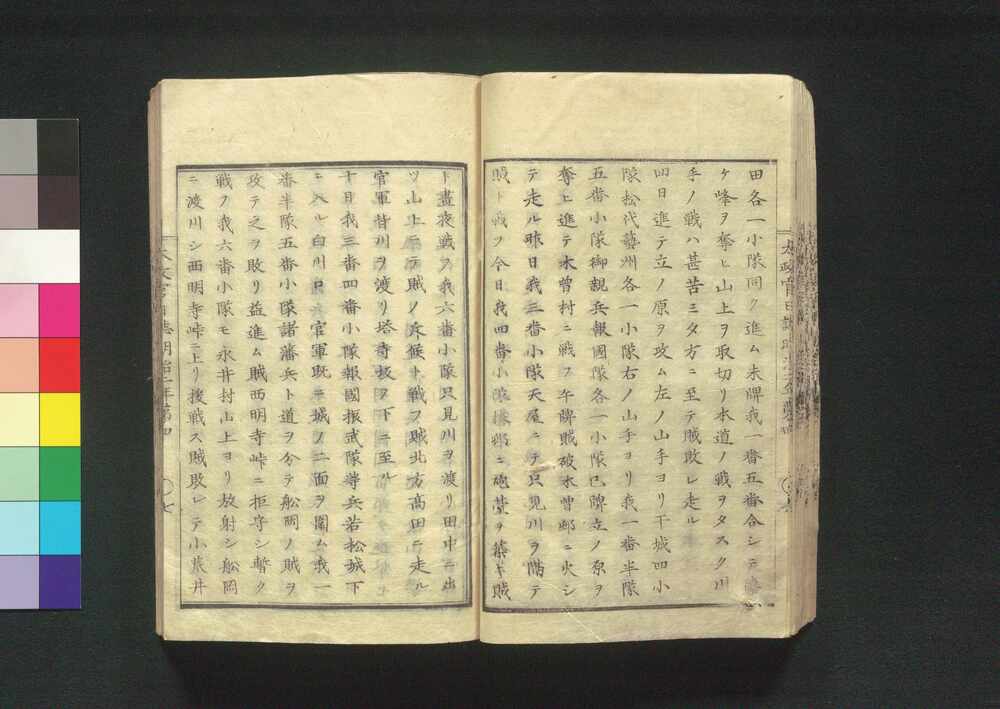 田各一小隊同ク進ム未牌我一番五番合シテ
ケ峰ヲ奪ヒ山上ヲ取切リ本道ノ戦ヲタスク川
手ノ戦ハ甚苦ミタ方ニ至テ賊敗レ走ル
四日進テ立ノ原ヲ攻ム左ノ山手ヨリ干城四小
隊松代藝州各一小隊右ノ山手ヨリ我一番半隊
五番小隊御親兵報國隊各一小隊巳牌立ノ原ヲ
奪ヒ進テ木曽村ニ戦フ午牌賊破木曽邨ニ火シ
テ走ル昨日我三番小隊天屋ニテ只見川ヲ隔テ
賊ト戦フ今日我四番小隊 邨ニ砲臺ヲ築キ賊
ト晝夜戦フ我六番小隊只見川ヲ渡リ田中ニ出
ツ山上ニテ賊ノ斥候ト戦フ賊北方高田ニ走ル
官軍皆川ヲ渡リ塔寺坂ノ下ニ至ル
十日我三番四番小隊報國振武隊等兵若松城下
ニ入ル白川口ノ官軍既ニ城ノ二面ヲ圍ム我一
番半隊五番小隊諸藩兵ト道ヲ分テ舩岡ノ賊ヲ
攻テ之ヲ敗リ益進ム賊西明寺峠ニ拒守シ暫ク
戦フ我六番小隊モ永井村山上ヨリ放射シ舩岡
ニ渡川シ西明寺峠ニ上リ接戦ス賊敗レテ小荒井
太政官日誌明治二年第四